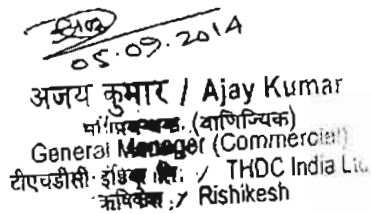 05.09.2014
अजय कुमार / Ajay Kumar
(वाणिज्यिक)
General Manager (Commercial)
टीएचडीसी इंडिया लि. / THDC India Ltd.
ऋषिकेश / Rishikesh